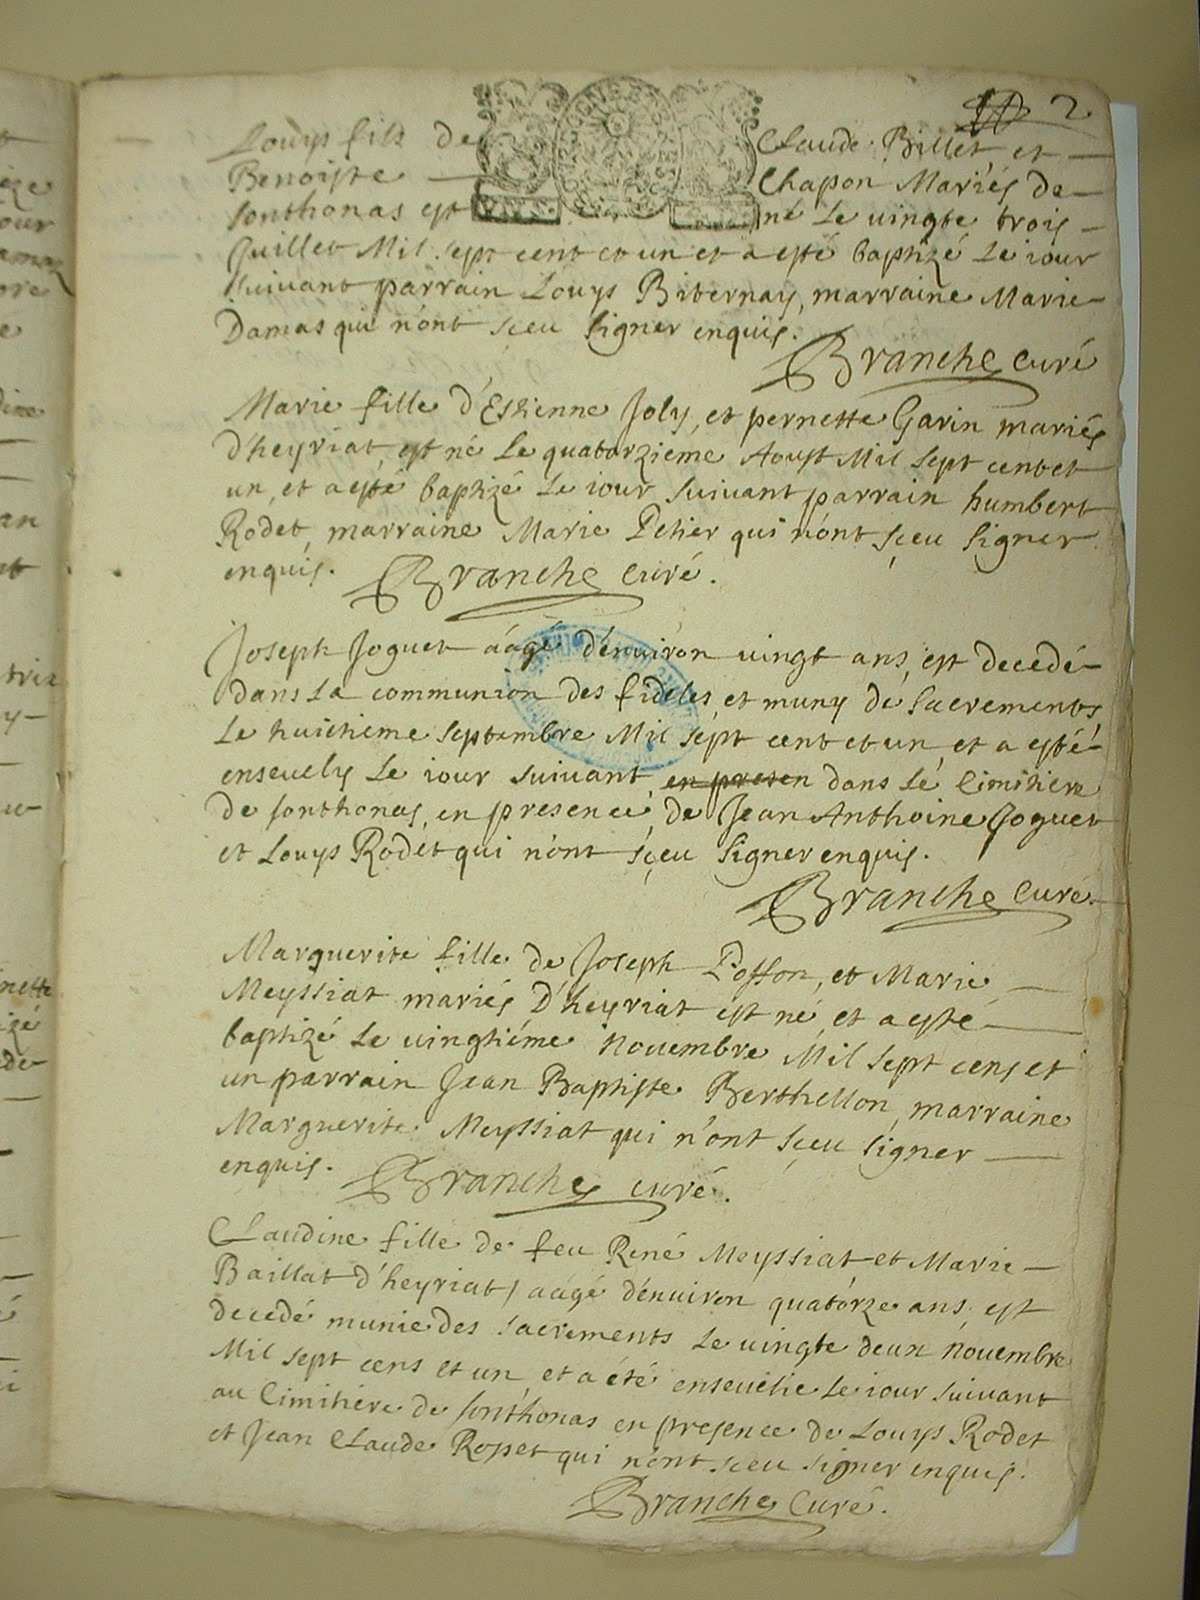 2
Louys fils de Claude Billet, et
Benoiste Chapon Mariés de
Sonthonas est né le vingte trois
Juillet Mil sept cent et un et a esté baptizé le iour
suivant parrain Louys Bibernay, marraine Marie
Damas qui n'ont sceu signer enquis.
Branche curé
Marie fille d'Estienne Joly, et pernette Garin mariés
d'heyriat, est né le quatorzieme Aoust Mil sept cent et
un, et a esté baptizé le iour suivant parrain humbert
Rodet, marraine Marie Petier qui n'ont sçeu signer
enquis. Branche curé.
Joseph Joguet aâgé d'enuiron uingt ans, est decedé
dans la communion des fideles, et muny de sacrements,
le huictieme septembre Mil sept cent et un, et a esté
enseuely le iour suivant en presen dans le Cimitiere
de Sonthonas, en presence, de Jean Anthoine Joguet
et Louys Rodet qui n'ont sçeu signer enquis.
Branche Curé
Marguerite fille de Joseph Posson, et Marie
Meyssiat mariés d'heyriat est né, et a esté
baptizé le uingtiéme Nouembre Mil sept cens et
un parrain Jean Baptiste Berthellon, marraine
Marguerite Meyssiat qui n'ont sçeu signer
enquis. Branche curé.
Claudine fille de feu René Meyssiat et Marie
Baillat d'heyriat, aâgé d'enuiron quatorze ans, est
decedé munie des sacrements le uingte deux Nouembre
Mil sept cens et un, et a été enseuelie le iour suivant
au Cimitiére de Sonthonas en presence de Louys Rodet
et Jean Claude Rosset qui n'ont sceu signer enquis.
Branche Curé.